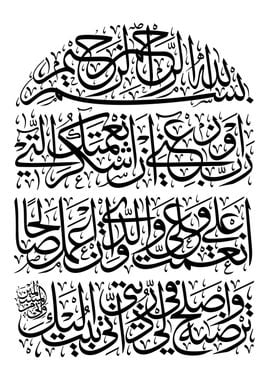 بِسْمِ اللهِ الرَّحْمٰنِ الرَّحِيمِ
رَبِّ أَوْزِعْنِي أَنْ أَشْكُرَ نِعْمَتَكَ الَّتِي
أَنْعَمْتَ عَلَيَّ وَعَلَى وَالِدَيَّ وَأَنْ أَعْمَلَ صَالِحًا
تَرْضَاهُ وَأَصْلِحْ لِي فِي ذُرِّيَّتِي إِنِّي تُبْتُ إِلَيْكَ وَإِنِّي مِنَ الْمُسْلِمِينَ